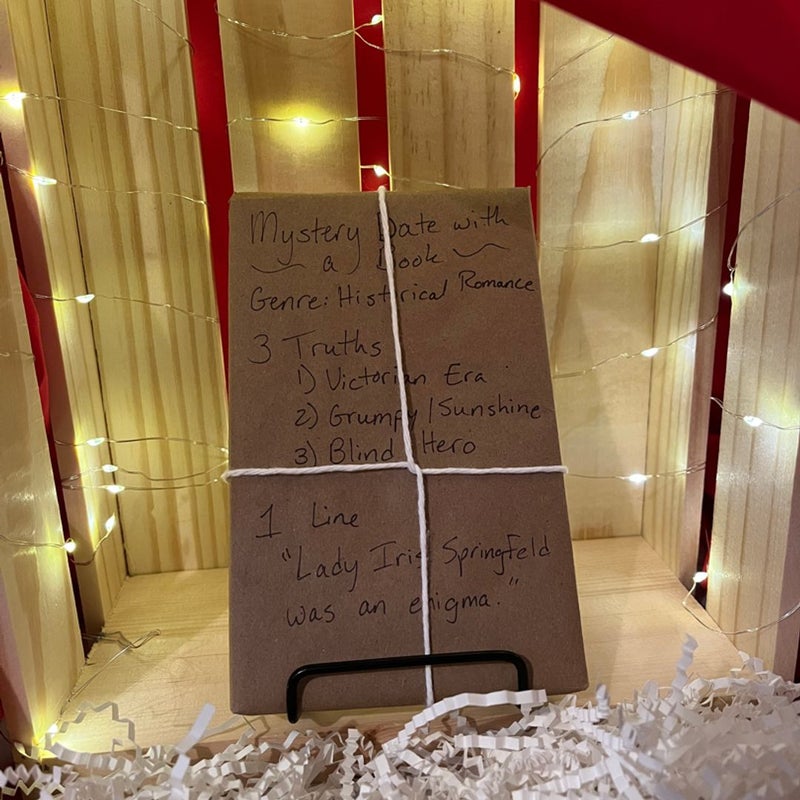 Mystery Date with
a Book
Genre: Historical Romance
3 Truths
1) Victorian Era
2) Grumpy/Sunshine
3) Blind Hero
1 Line
"Lady Iris Springfeld
was an enigma."